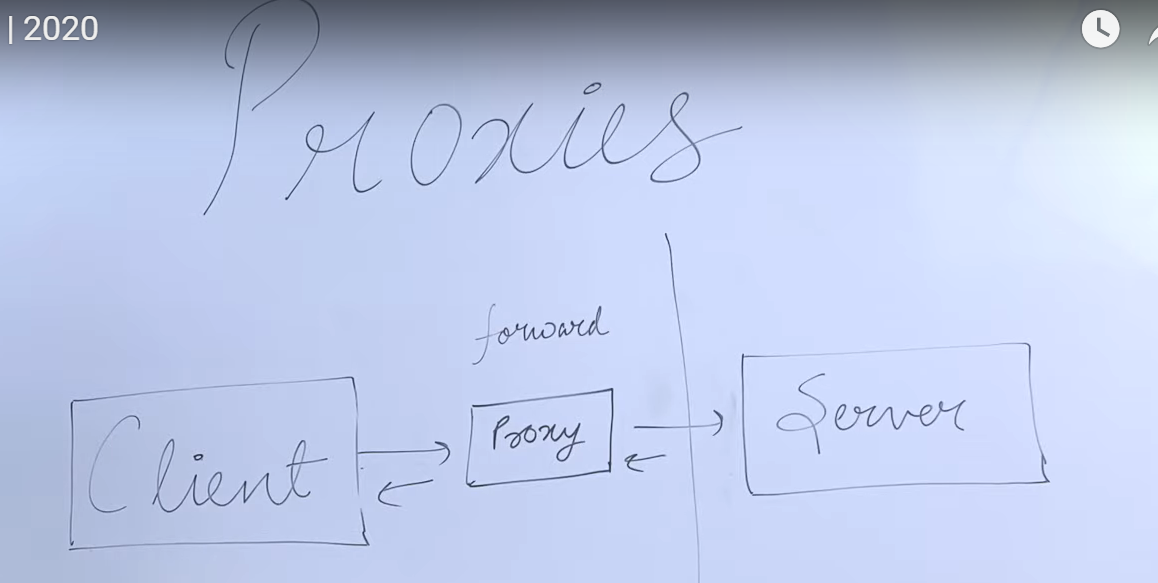 | 2020
Proxies
forward
Client
Proxy
Server